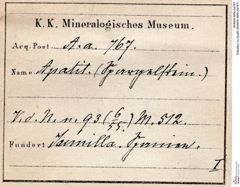 K. K. Mineralogisches Museum.
Acq. Post A. a. 767.
Name Apatit. (Spargelstein.)
V. d. N. n. 93 (6/55) M. 512.
Fundort Jumilla. Spanien.
I